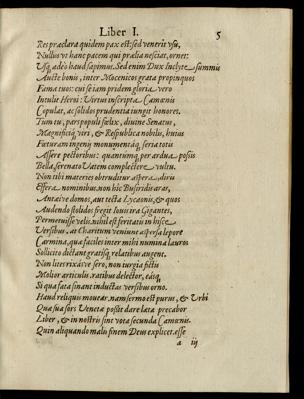 Liber I. 5
Res præclara quidem pax est: sed venerit usu,
Nullus ut hanc pacem qui præliа nesciat, ornet:
Usq; adeò haud sapimus. Sed enim Dux Inclyte summis
Aucte bonis, inter Mecenicos grata propinquos
Fama tuos: cui se iam pridem gloria vero
Intulit Heroi: Virtus inscripta Camœnis
Copulat, ac solidos prudentia iungit honores.
Tum tu, pars populi fœlix, divine Senatus,
Magnificiq; viri, & Respublica nobilis, huius
Fœturam ingenij monumentáq; seria totis
Assere pectoribus: quantumq; per ardua possis
Bella, serenato Vatem complectere vultu.
Non tibi materies obtruditur aspera diru
Effera nominibus. non hic Busiridis aras,
Antæive domos, aut tecta Lycaonis, & quos
Audendo stolidos fregit Iovis ira Gigantes,
Permetuisse velis. nihil est feritatis in hisce
Versibus. at Charitum veniunt aspersa lepore
Carmina, quæ faciles inter mihi numina lauros
Sollicito dictant gratisq; relatibus augent.
Non lites rixásve sero, non turgida fictis
Molior articulis. ratibus delector, eáq;
Si qua fata sinant inductas versibus orno.
Haud reliquis movear. nam sermo est purus, & Urbi
Quæ sua fors Venetæ possit dare læta precabor
Liber, & in nostris sint vota secunda Camœnis.
Quin aliquando malis finem Deus explicet. esse
a iij